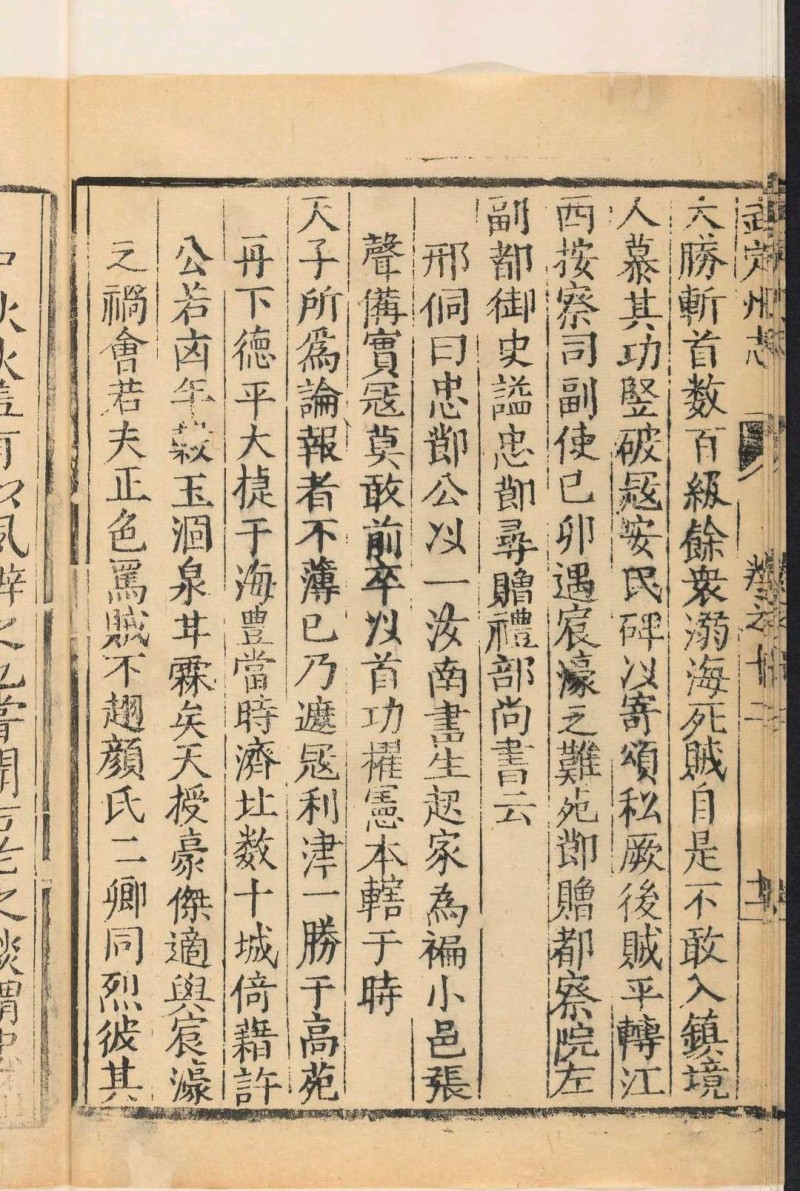 武定州志 卷之十二 十二
大勝斬首数百級餘衆溺海死賊自是不敢入鎮境
人慕其功竪破冦安民碑以寄頌私厥後賊平轉江
西按察司副使己卯遇宸濠之難死節贈都察院左
副都御史謚忠節尋贈禮部尚書云
邢侗曰忠節公以一汝南書生起家為褊小邑張
聲備實冦莫敢前卒以首功擢憲本轄于時
天子所為論報者不薄已乃遮冦利津一勝于高苑
再下德平大㨗于海豊當時濟北数十城倚藉許
公若凶年穀玉涸泉甘霖矣天授豪傑適與宸濠
之禍會若夫正色罵賊不趐顔氏二卿同烈彼其